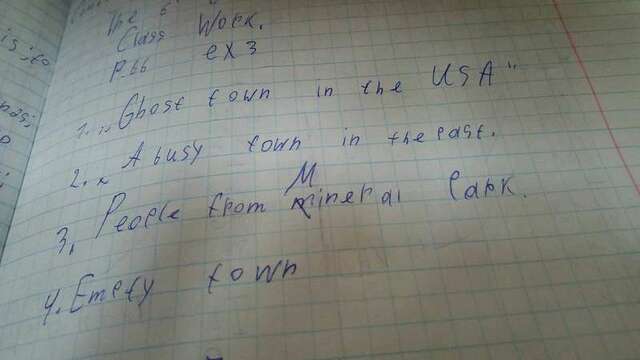 The
Class Work.
P.66 ex 3
1. „Ghost town in the USA"
2. „A busy town in the past.
3. People from Mineral Park.
4. Empty town